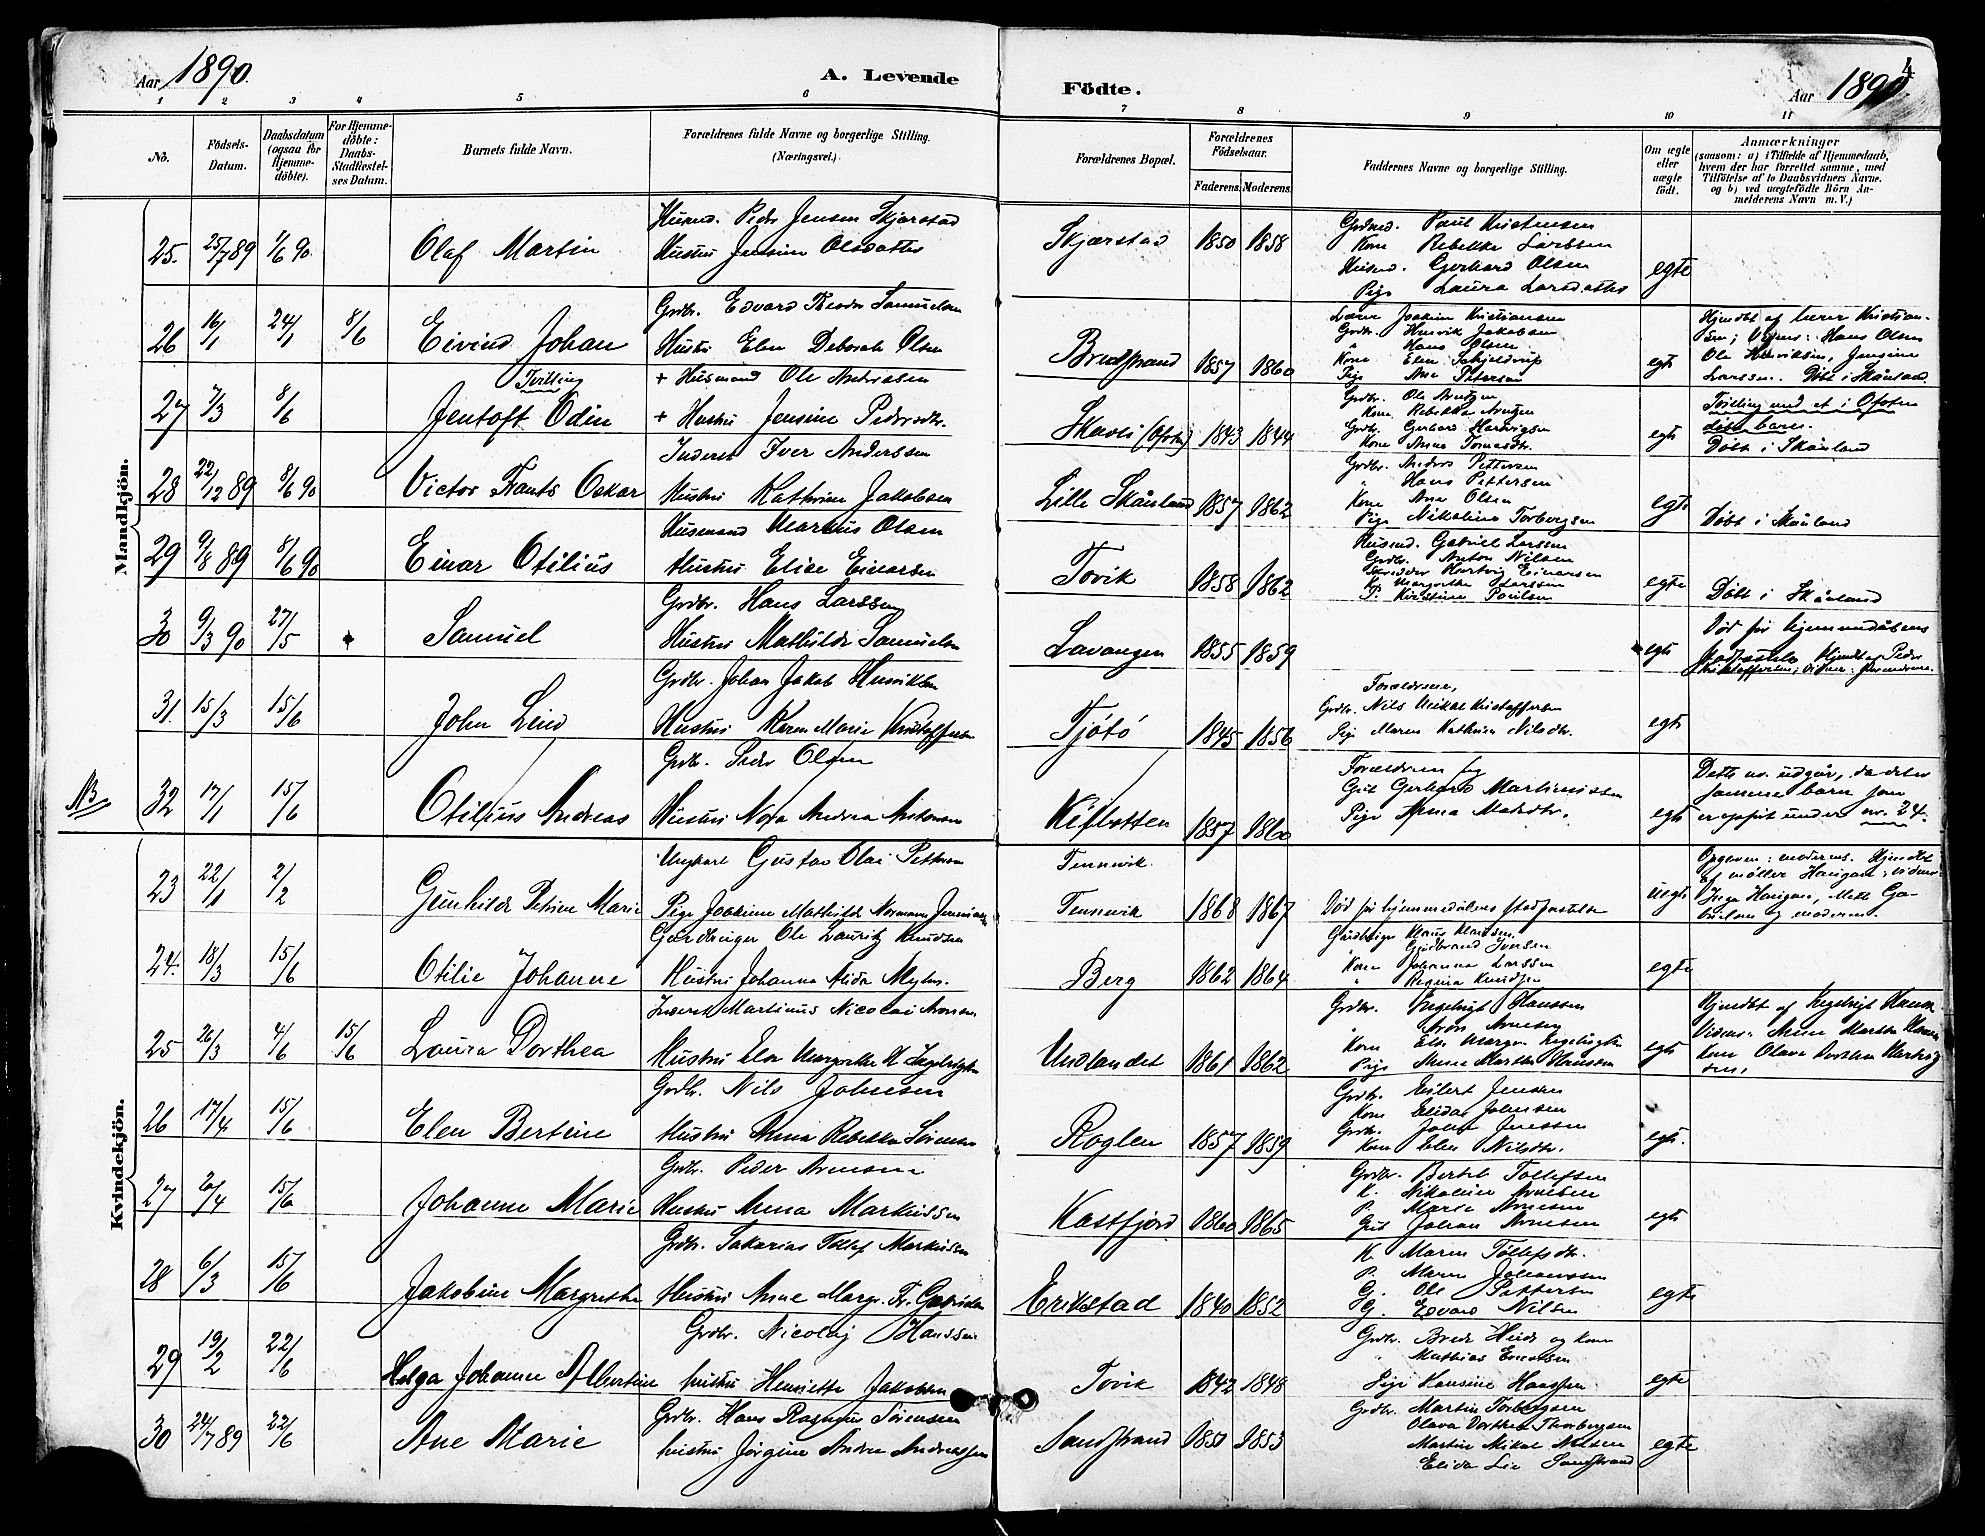 Aar 1890.
A. Levende
Födte.
Aar 1890
4
1 2 3 4 5 6 7 8 9 10 11
No.
Födsels-
Datum.
Daabsdatum
(ogsaa för
Hjemme-
döbte).
For Hjemme-
döbte:
Daabs-
Stadfæstel-
ses Datum.
Barnets fulde Navn.
Forældrenes fulde Navne og borgerlige Stilling.
(Næringsvei.)
Forældrenes Bopæl.
Forældrenes
Födselsaar.
Faderens. Moderens.
Faddernes Navne og borgerlige Stilling.
Om ægte
eller
uægte
födt.
Anmærkninger
(saasom: a) i Tilfælde af Hjemmedaab,
hvem der har forrettet samme, med
Tilföielse af to Daabsvidners Navne,
og b) ved uægtefödte Börn An-
melderens Navn m. V.)
Mandkjön.
25. 25/7 89 1/6 90. Olaf Martin
Husmd. Peder Jensen Skjærstad
Hustru Jensine Olsdatter
Skjærstad 1850 1858
Grdmd. Paul Kristensen
Kone Rebekka Larssen
Husmd. Gerhard Olsen
Pige Laura Larsdatter
egte
26 16/1 24/1 8/6 Eivind Johan
Grdbr. Edvard Teodor Samuelsen
Hustru Elen Deborah Olsen
Brudstrand 1857 1860
Lærer Joakim Kristiansen
Grdbr. Henrik Jakobsen
" Hans Olsen
Kone Elen Schjeldrup
Pige Ane Petersen
egte
Hjemdbt af lærer Kristian-
sen; Vidner: Hans Olsen
Ole Henriksen, Jensine
Larssen. Döbt i Skånland.
27 7/3 8/6 Tvilling
Jentoft Odin
+ Husmand Ole Andreasen
+ Hustru Jensine Pedersdtr.
1843 1844
Grdbr. Ole Arntzen
Kone Rebekka Arntzen
Grdbr. Gerhard Hartvigsen
Kone Anna Tomasdtr.
egte
Tvilling med et i Ofoten
döbt barn.
Döbt i Skånland
28 22/12 89 8/6 90 Victor Frants Oskar
Inderst Iver Anderssen
Hustru Kathrine Jakobsen
Lille Skånland 1857 1862
Grdbr. Anders Pettersen
" Hans Pettersen
Kone Ane Olsen
Pige Nikoline Torbergsen
egte
Döbt i Skånland
29 9/8 89 8/6 90 Einar Otilius
Husmand Markus Olsen
Hustru Elise Einarsen
Tovik 1858 1862
Husmd. Gabriel Larssen
Grdbr. Anton Nilsen
Skredder Hartvig Einarsen
K. Margrethe Larssen
P. Kristine Poulsen
egte
Döbt i Skånland
30 9/3 90 27/5 Samuel
Grdbr. Hans Larssen
Hustru Mathilde Samuelsen
Lavangen 1855 1859
egte
Död för hjemmedåbens
stadfæstelse. Hjemdbt af Peder
Kristoffersen; vidner: forældrene.
31. 15/3 15/6 John Leiv
Grdbr. Johan Jakob Henriksen
Hustru Karen Marie Kristoffersen
Tjötö 1845 1856
Forældrene,
Grdbr. Nils Mikal Kristoffersen
Pige Maren Kathrine Nilsdtr.
egte
NB 32 17/1 15/6 Otilius Andreas
Grdbr. Peder Olsen
Hustru Nora Andrea Antonsen
1857 1860
Forældrene og
Gut Gerhard Martinussen
Pige Anna Madsdtr.
egte
Dette nr. udgår, da det er
samme barn som
er opfört under nr. 24.
Kvindekjön.
23 22/1 2/2 Gunhilde Petrine Marie
Ungkarl Gustav Olai Pettersen
Pige Joakime Mathilde Normann Jensen
Tennevik
Tennevik 1868 1867
Död för hjemmedåbens stadfæstelse
uegte
Opgiven: moderens. Hjemdbt
af möller Hangan: vidner:
Inga Hangan, Mette Ga-
brielsen og moderen.
24. 18/3 15/6 Otilie Johanne
Gårdbruger Ole Lauritz Knudsen
Hustru Johanna Alida
Berg 1862 1864
Gårdbruger Klaus Klausen
" Gudbrand Iversen
Kone Johanna Larssen
" Regina Knudsen
egte
25 26/3 4/6 15/6 Laura Dorthea
Inderst Martinus Nicolai Aronsen
Hustru Elen Margrethe K. Ingebrigtsen
Undlandet 1861 1862
Grdbr. Ingebrigt Hanssen
" Aron Arnesen
Kone Elen Margr. Ingebrigtsen
Pige Anne Martha Hanssen
egte
Hjemdbt af Ingebrigt Hanssen
Vidner: Anne Martha Hanssen
Kone Olava Dorthea Hartvig
sen.
26 17/4 15/6 Elen Bertine
Grdbr. Nils Johnsen
Hustru Anna Rebekka Sörensen
Roglen 1857 1859
Grdbr. Eilert Jensen
Kone Elida Johnsen
Grdbr. Johan Jenssen
Kone Elen Nilsdtr.
egte.
27 20/4 15/6 Johanne Marie
Grdbr. Peder Arnesen
Hustru Anna Markussen
Kastfjord 1860 1865
Grdbr. Bertel Tollefsen
K. Nikoline Arnesen
P. Marie Arnesen
Gut Johan Arnesen
egte
28 6/3 15/6 Jakobine Margrethe
Grdbr. Sakarias Tollef Markussen
Hustru Anne Margr. Fr. Gabrielsen
Erikstad 1840 1852
K. Maren Tollefsdtr.
P. Maren Johanssen
G. Ole Pettersen
G. Edvard Nilsen
egte
29 19/2 22/6 Helga Johanne Albertine
Grdbr. Nicolaj Hanssen
hustru Henriette Jakobsen
Tovik 1842 1848
Grdbr. Brede Heide og kone
" Mathias Ericksen
Pige Hansine Hanssen
egte
30 24/7 89 22/6 Ane Marie
Grdbr. Hans Rasmus Sörensen
hustru Jörgine Andrea Andreassen
Sandstrand 1850 1853
Grdbr. Martin Torbergsen
Olava Dorthea Thorbergsen
Martin Mikal Nilsen
Elida Lie Sandstrand
egte